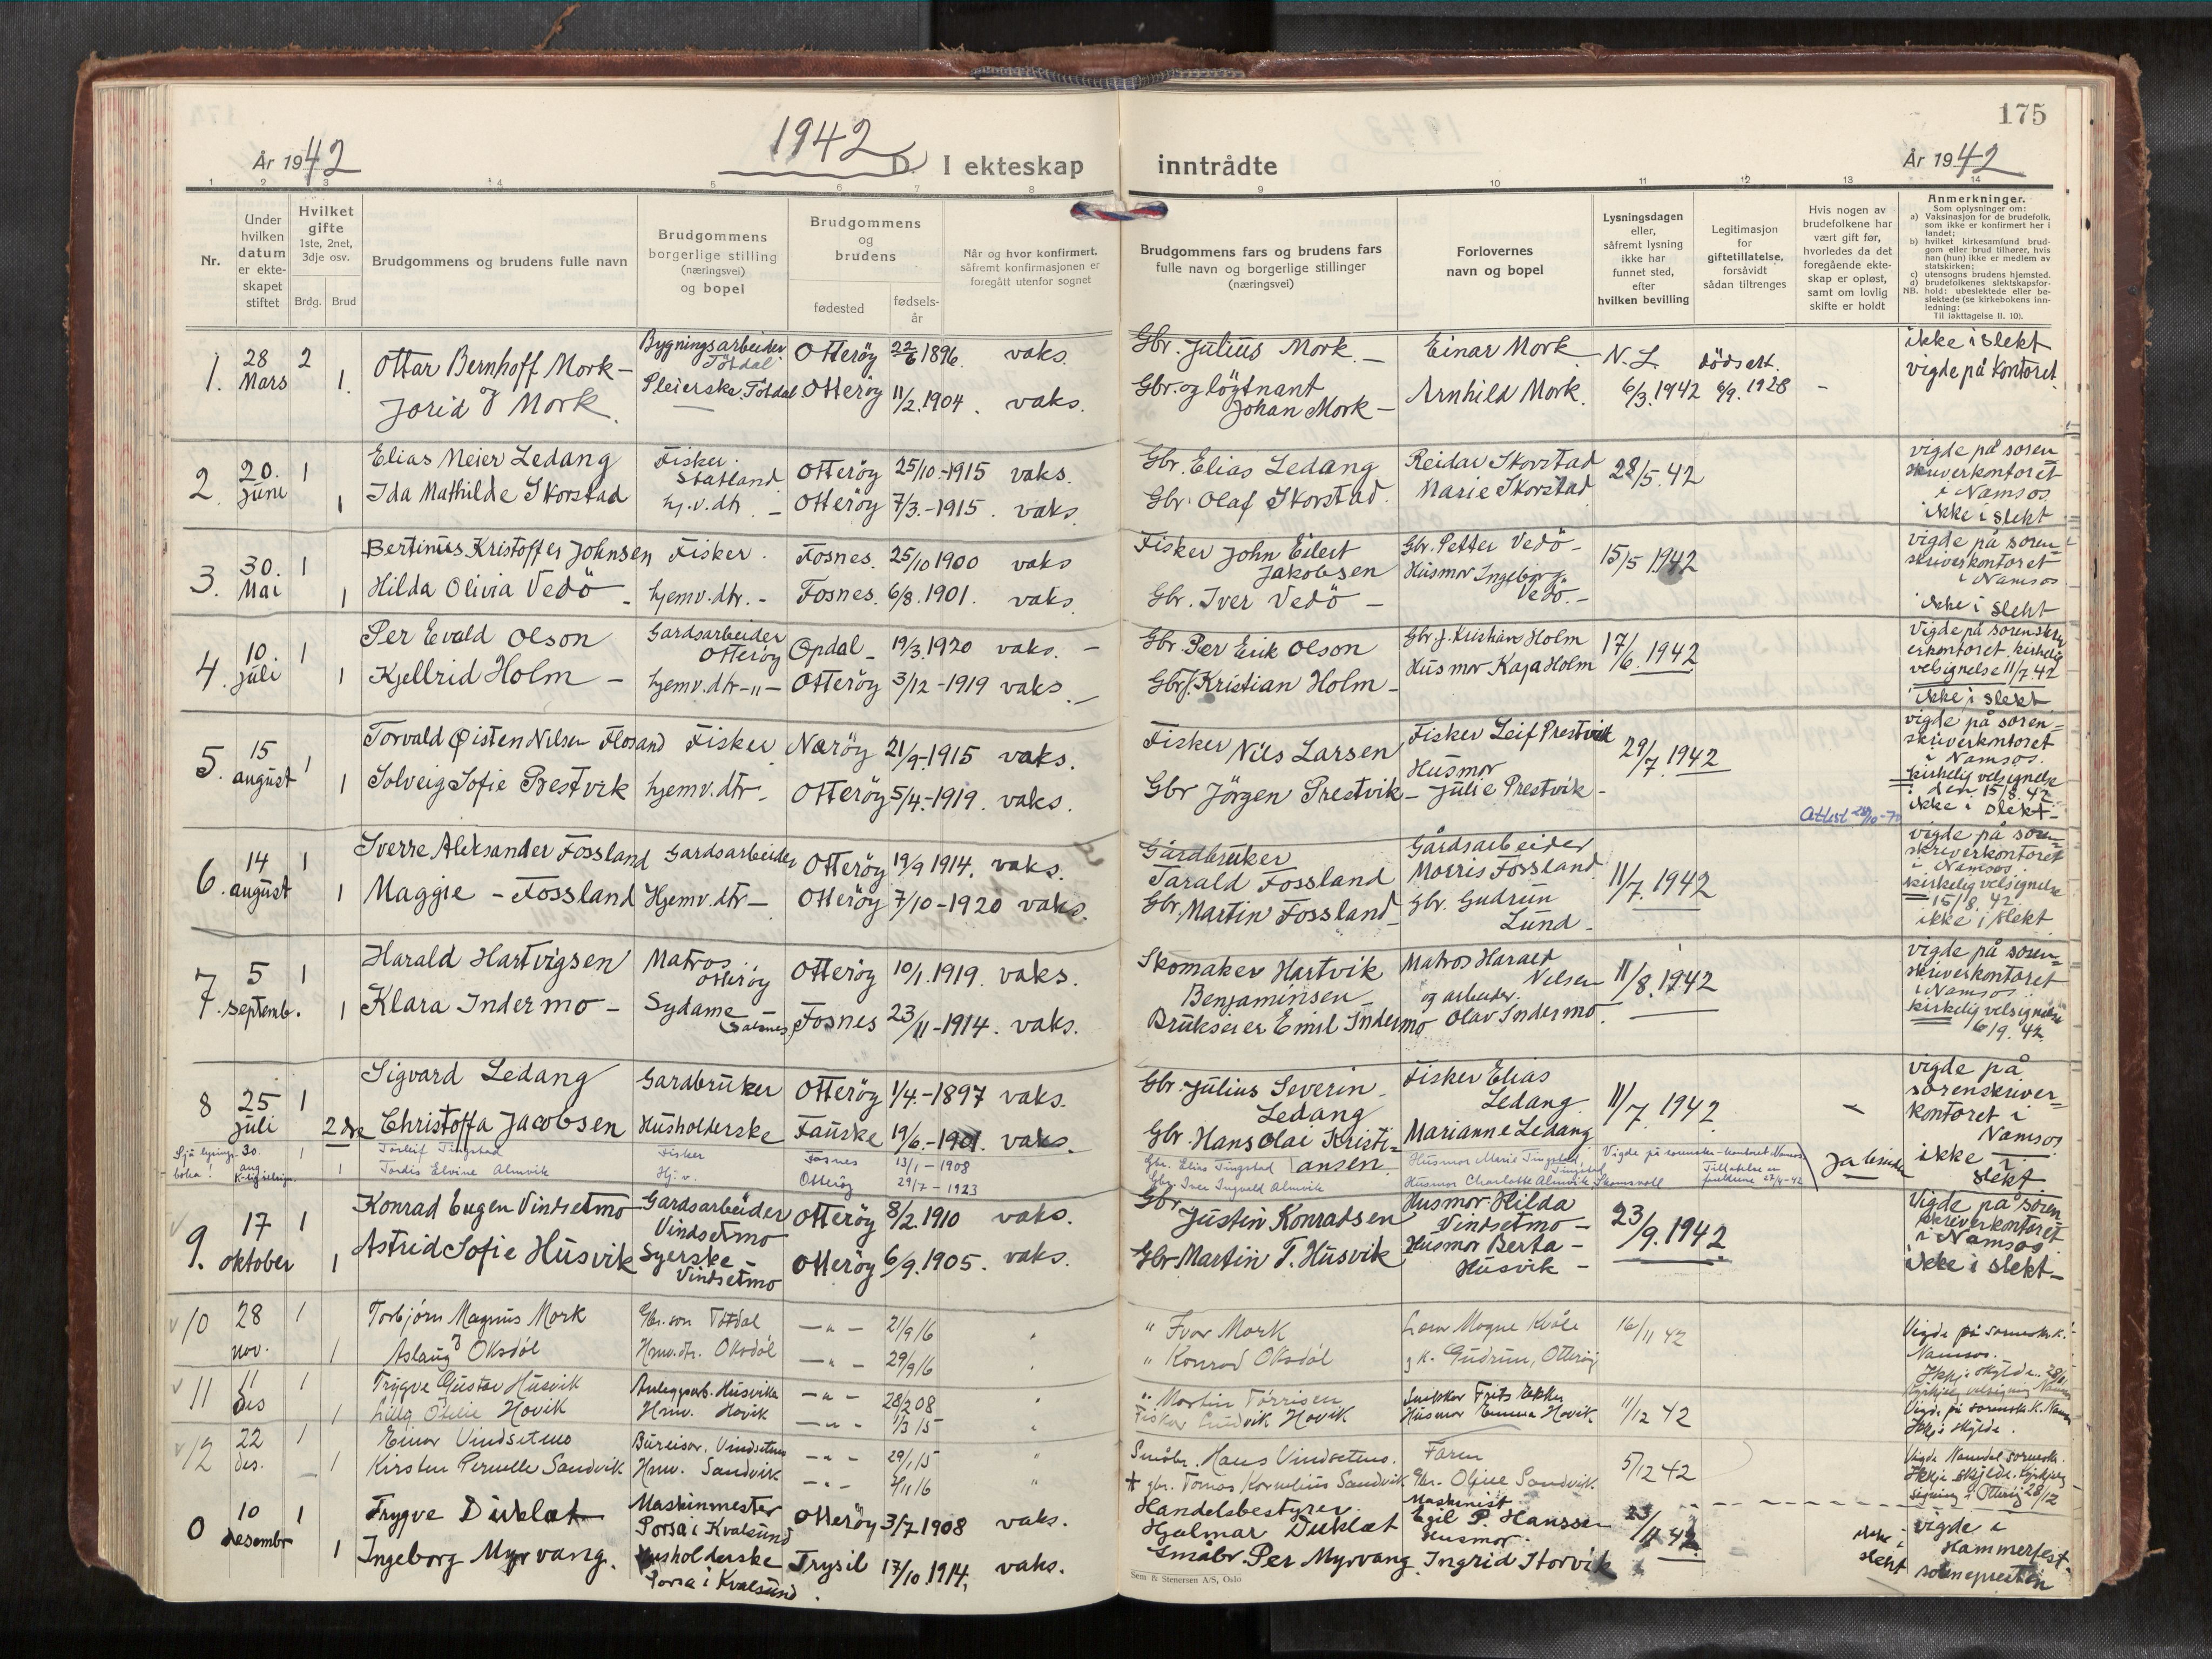 175
1942
År 1942
D. I ekteskap inntrådte
År 1942
1 2 3 4 5 6 7 8 9 10 11 12 13 14
Nr.
Under hvilken datum er ekte-skapet stiftet
Hvilket gifte 1ste, 2net, 3dje osv.
Brdg. Brud
Brudgommens og brudens fulle navn
Brudgommens borgerlige stilling (næringsvei) og bopel
Brudgommens og brudens
fødested
fødsels-år
Når og hvor konfirmert, såfremt konfirmasjonen er foregått utenfor sognet
Brudgommens fars og brudens fars fulle navn og borgerlige stillinger (næringsvei)
Forlovernes navn og bopel
Lysningsdagen eller, såfremt lysning ikke har funnet sted, efter hvilken bevilling
Legitimasjon for giftetillatelse, forsåvidt sådan tiltrenges
Hvis nogen av brudefolkene har vært gift før, hvorledes da det foregående ekte-skap er opløst, samt om lovlig skifte er holdt
Anmerkninger.
Som oplysninger om:
a) Vaksinasjon for de brudefolk, som ikke er konfirmert her i landet;
b) hvilket kirkesamfund brud-gom eller brud tilhører, hvis han (hun) ikke er medlem av statskirken;
c) utensogns brudens hjemsted.
d) brudefolkenes slektskapsfor-hold: ubeslektede eller be-slektede (se kirkebokens inn-ledning:
NB.
Til iakttagelse II. 10).
1. 28 Mars 2 Ottar Bernhoff Mork - Bygningsarbeider Tötdal Otteröy 22/6 1896. vaks. Gbr. Julius Mork. - Einar Mork N. L. dödsatt. ikke i slekt
1. Jorid J Mork. Pleierske. Tötdal Otteröy 11/2. 1904. vaks. Gbr. og löytnant Johan Mork - Arnhild Mork. 6/3. 1942 6/9. 1928 - vigde på kontoret
2. 20. juni 1 Elias Meier Ledang Fisker. Statland Otteröy 25/10-1915 vaks. Gbr. Elias Ledang Reidar Skorstad 28/5. 42 vigde på soren=skriverkontoret i Namsos.
1 Ida Mathilde Skorstad hj.v.dtr. - Otteröy 7/3.-1915. vaks. Gbr. Olaf Skorstad. Marie Skorstad ikke i slekt
3. 30. Mai 1 Bertinus Kristoffer Johnsen Fisker. Fosnes. 25/10 1900 vaks Fisker John Eilert Jakobsen Gbr. Petter Vedö - 15/5 1942 vigde på soren=skriverkontoret i Namsos
1 Hilda Olivia Vedö - hjemv.dtr. - Fosnes. 6/8. 1901. vaks. Gbr. Iver Vedö - Husmor Ingeborg Vedö. - ikke i slekt
4. 10. juli 1 Per Evald Olson Gardsarbeider Otteröy Opdal - 19/3. 1920 vaks. - Gbr. Per Erik Olson Gbr. J. Kristian Holm 17/6. 1942 Vigde på sorenskriverkontoret. kirkelig velsignelse 11/7. 42
1 Kjellrid Holm - hjemv.dtr -"- Otteröy 3/12-1919 vaks. - Gbr. J. Kristian Holm - Husmor Kaja Holm ikke i slekt
5. 15 august 1 Torvald Øisten Nilsen Flosand Fisker Næröy 21/9-1915 vaks. Fisker Nils Larsen Fisker Leif Prestvik 29/7. 1942 vigde på soren-skriverkontoret i Namsos.
1 Solveig Sofie Prestvik hjemv.dtr - Otteröy 5/4.-1919. vaks. Gbr Jörgen Prestvik - Husmor Julie Prestvik - kirkelig velsignelse den 15/8. 42. ikke i slekt -
6. 14 august 1 Sverre Aleksander Fossland Gardsarbeider Otteröy 19/9 1914. vaks. Gårdbruker Tarald Fossland Gårdsarbeider Morris Fossland 11/7. 1942 vigde på soren=skriverkontoret i Namsos.
1 Maggie - Fossland Hjemv.dtr - Otteröy 7/10-1920 vaks. Gbr. Martin Fossland Gbr. Gudrun Lund - kirkelig velsignelse 15/8. 42. ikke i slekt
7. 5 septemb. 1 Harald Hartvigsen Matros.. Otteröy Otteröy 10/1. 1919. vaks. Skomaker Hartvik Benjaminsen - Matros Harald Nilsen 11/8. 1942 vigde på soren=skriverkontoret i Namsos
1 Klara Indermo - Sydame Salsnes Fosnes 23/11-1914. vaks. Brukseier Emil Indermo og arbeider. Olav Indermo. kirkelig velsignelse 6/9. 42
8 25 juli 1 Sigvard Ledang Gardbruker Otteröy 1/4.-1897 vaks. Gbr. Julius Severin Ledang Fisker Elias Ledang 11/7. 1942 - vigde på sorenskriver=kontoret i Namsos
2 dre Christoffa Jacobsen Husholderske Fauske 19/6.-1901. vaks. Gbr. Hans Olai Kristi=ansen. Marianne Ledang ikke i slekt
Sjå lysings-boka! 30. aug. 1 Torleif Tingstad Fisker Fosnes 13/1-1908 Gbr. Elias Tingstad Husmor Marie Tingstad, Tingstad Vigde på sorenskr-kontoret. Namsos
1 Tordis Elvine Almvik Hj. v. Otteröy 29/7-1923 Gbr. Iver Ingvald Almvik Husmor Charlotte Almvik,
9. 17 oktober 1 Konrad Eugen Vindsetmo Gardsarbeider Vindsetmo Otteröy 8/2. 1910 vaks. Gbr. Justin Konradsen Husmor Hilda Vindsetmo - 23/9. 1942 Vigde på sorenskriverkontoret i Namsos.
1 Astrid Sofie Husvik Syerske - Vindsetmo Otteröy 6/9. 1905. vaks. Gbr Martin T. Husvik Husmor Berta - Husvik - ikke i slekt -
10 28 nov. 1 Torbjørn Magnus Mork Gbr.son Tötdal - " - 21/9 16 " Ivar Mork Magne Kvåle 16/11 42 Vigde på sorenskr.k. Namsos.
1 Aslaug Oksdöl Hmv.dtr. Oksdöl - " - 29/9 16 " Konrad Oksdöl Gudrun, Otteröy Ikkje skylde.
11 11 des 1 Trygve Gustav Husvik Anleggsarb. Husvika - " - 28/2 08 " Martin Tørrisen Snikkar Frits 11/12 42 Vigde på sorenskr.k. Namsos
1 Lilly Ovelie Hovik Hmv. Hovik - " - 1/3 15 Fiskar Ludvik Hovik Husmor Emma Hovik. Ikkje skylde.
12 22 des. 1 Einar Vindsetmo Bureisar. Vindsetmo - " - 29/1 15 Småbr. Hans Vindsetmo. Faren 5/12 42 Vigde Namdal sorenskr.
1 Kirsten Pernelle Sandvik Hmv. Sandvik - " - 4/11 16 + gbr. Tomas Kornelius Sandvik Gbr. Oline Sandvik. Ikkje skylde.
0 10 desembr 1 Trygve Duklæt Maskinmester Porsa i Kvalsund Otteröy 3/7. 1908 vaks. Handelsbestyrer. Hjalmar Duklæt Maskinist Egil P. Hanssen 23/11 42 vigde i Hammerfest.
1 Ingeborg Myrvang. Husholderske Porsa i Kvalsund. Trysil 17/10. 1914. vaks. Småbr. Per Myrvang Husmor. Ingrid Storvik ikke i slekt soknepresten
Sem & Stenersen A/S, Oslo